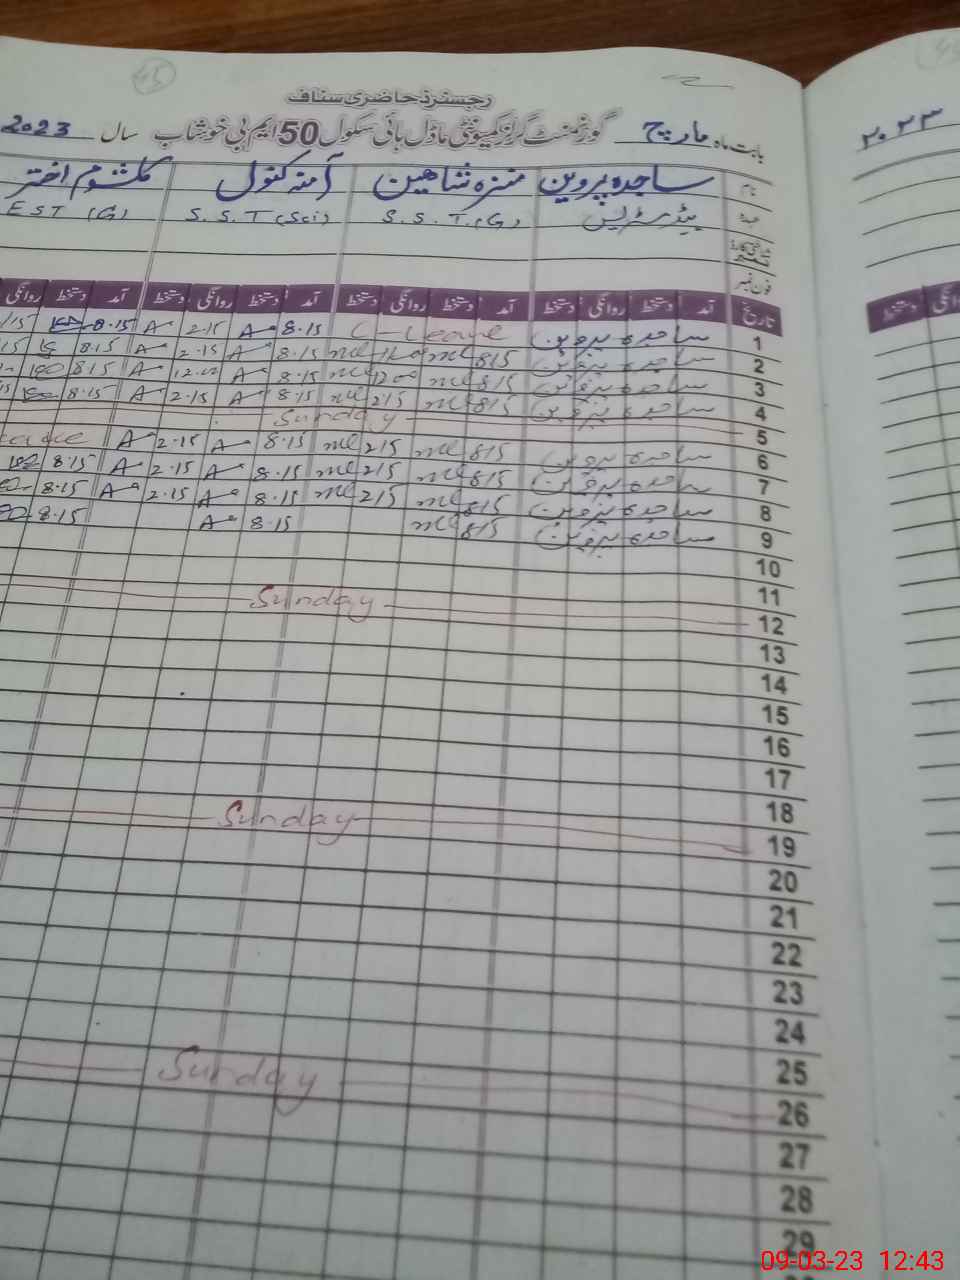 45
رجسٹرڈ حاضری سٹاف
بابت ماہ مارچ گورنمنٹ گرلز کمیونٹی ماڈل ہائی سکول 50 ایم بی خوشاب سال 2023
۲۰۲۳
نام ساجدہ پروین منزہ شاہین آمنہ کنول کلثوم اختر
عہدہ ہیڈ مسٹریس S.S.T.(G) S.S.T (Sci) EST (G)
شناختی کارڈ نمبر
فون نمبر
تاریخ آمد دستخط روانگی دستخط آمد دستخط روانگی دستخط آمد دستخط روانگی دستخط آمد دستخط روانگی
دستخط
1 ساجدہ پروین C-Leave 8.15 A 2.15 A 8.15
2 ساجدہ پروین 815 8.15 A 2.15 A 8.15
3 ساجدہ پروین 815 1200 8.15 A 12.00 A 8.15
4 ساجدہ پروین 815 215 8.15 A 2.15 A 8.15
5 Sunday
6 ساجدہ پروین 815 215 8.15 A 2.15 A
7 ساجدہ پروین 815 215 8.15 A 2.15 A 8.15
8 ساجدہ پروین 815 215 8.15 A 2.15 A 8.15
9 ساجدہ پروین 815 8.15 A 8.15
10
11
12 Sunday
13
14
15
16
17
18
19 Sunday
20
21
22
23
24
25
26 Sunday
27
28
29
09-03-23 12:43